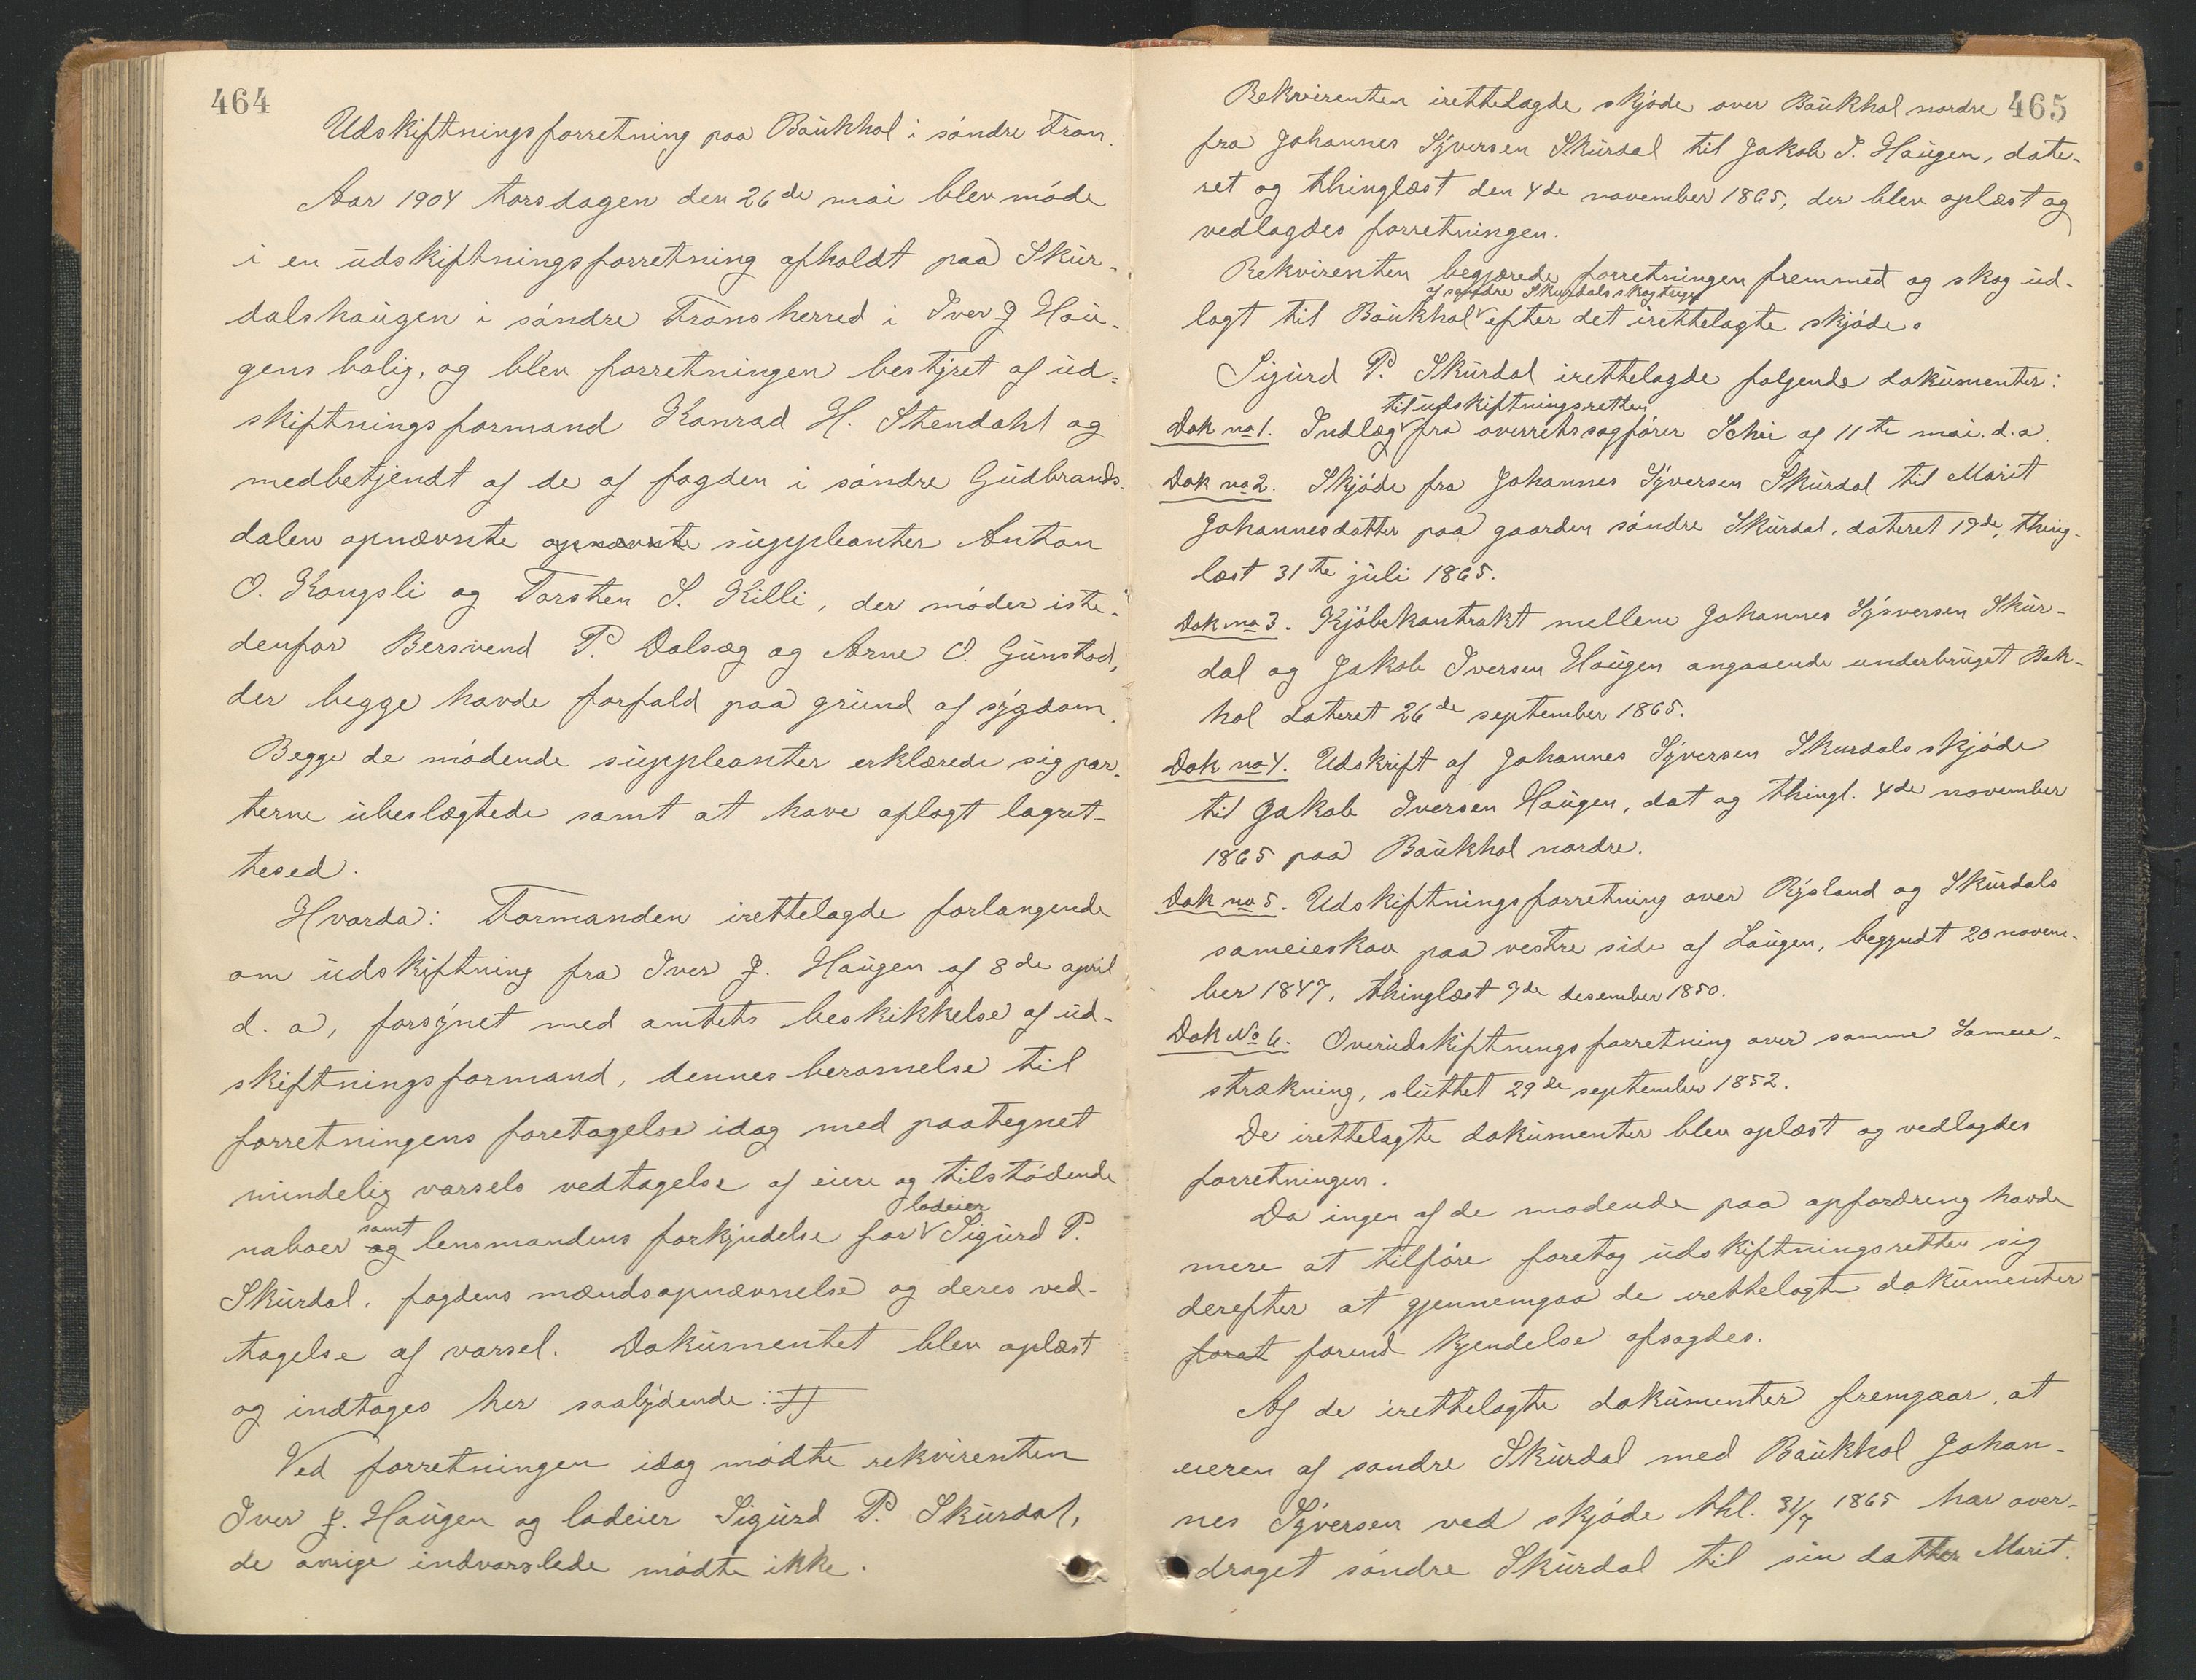 464
Udskiftningsforretning paa Baukhol i søndre Fron.
Aar 1904 torsdagen den 26de mai blev møde
i en udskiftningsforretning afholdt paa Skur-
dalshaugen i søndre Frons herred i Iver J Hau-
gens bolig, og blev forretningen bestyret af ud-
skiftningsformand Konrad H. Stendahl og
medbetjendt af de af fogden i søndre Gudbrands-
dalen opnævnte opnævnte suppleanter Anton
O. Kongsli og Torsten S. Killi, der møder iste-
denfor Bersvend P. Dalsæg og Arne O. Gunstad,
der begge havde forfald paa grund af sygdom.
Begge de mødende suppleanter erklærede sig par-
terne ubeslægtede samt at have aflagt lagret-
tesed.
Hvorda: Formanden irettelagde forlangende
om udskiftning fra Iver J. Haugen af 8de april
d. a, forsynet med amtets beskikkelse af ud-
skiftningsformand, dennes berammelse til
forretningens foretagelse idag med paategnet
mindelig varsels vedtagelse af eiere og tilstødende
naboer og samt lensmandens forkyndelse for ladeier Sigurd P.
Skurdal, fogdens mændsopnævnelse og deres ved-
tagelse af varsel. Dokumentet blev oplæst
og indtages her saalydende: #
Ved forretningen idag mødte rekvirenten
Iver J. Haugen og ladeier Sigurd P. Skurdal,
de øvrige indvarslede mødte ikke.
465
Rekvirenten irettelagde skjøde over Baukhol nordre
fra Johannes Syversen Skurdal til Jakob I. Haugen, date-
ret og thinglæst den 4de november 1865, der blev oplæst og
vedlagdes forretningen.
Rekvirenten begjærede forretningen fremmet og skog ud-
af søndre Skurdals skogteig
lagt til Baukhol efter det irettelagte skjøde.
Sigurd P. Skurdal irettelagde følgende dokumenter:
til udskiftningsretten
Dok no 1. Indlæg fra overretssagfører Schei af 11te mai. d. a.
Dok no 2. Skjøde fra Johannes Syversen Skurdal til Marit
Johannesdatter paa gaarden søndre Skurdal, dateret 17de, thing-
læst 31te juli 1865.
Dok no 3. Kjøbekontrakt mellem Johannes Syversen Skur-
dal og Jakob Iversen Haugen angaaende underbruget Bak-
hol dateret 26de september 1865.
Dok no 4. Udskrift af Johannes Syversen Skurdals skjøde
til Jakob Iversen Haugen, dat og thingl. 4de november
1865 paa Baukhol nordre.
Dok no 5. Udskiftningsforretning over Rysland og Skurdals
sameieskov paa vestre side af Laugen, begyndt 20 novem-
ber 1847, thinglæst 7de desember 1850.
Dok No 6. Overudskiftningsforretning over samme Sameie-
strækning, sluttet 29de september 1852.
De irettelagte dokumenter blev oplæst og vedlagdes
forretningen.
Da ingen af de mødende paa opfordring havde
mere at tilføre foretog udskiftningsretten sig
derefter at gjennemgaa de irettelagte dokumenter
forat forend kjendelse afsagdes.
Af de irettelagte dokumenter fremgaar, at
eieren af søndre Skurdal med Baukhol Johan-
nes Syversen ved skjøde thl. 31/7 1865 har over-
draget søndre Skurdal til sin datter Marit.